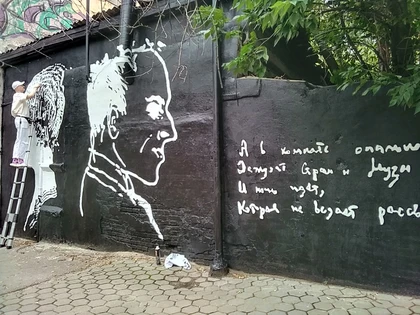 А в комнате опально
Дежурят страх и Муза
И ночь идет,
Которая не ведает рассв